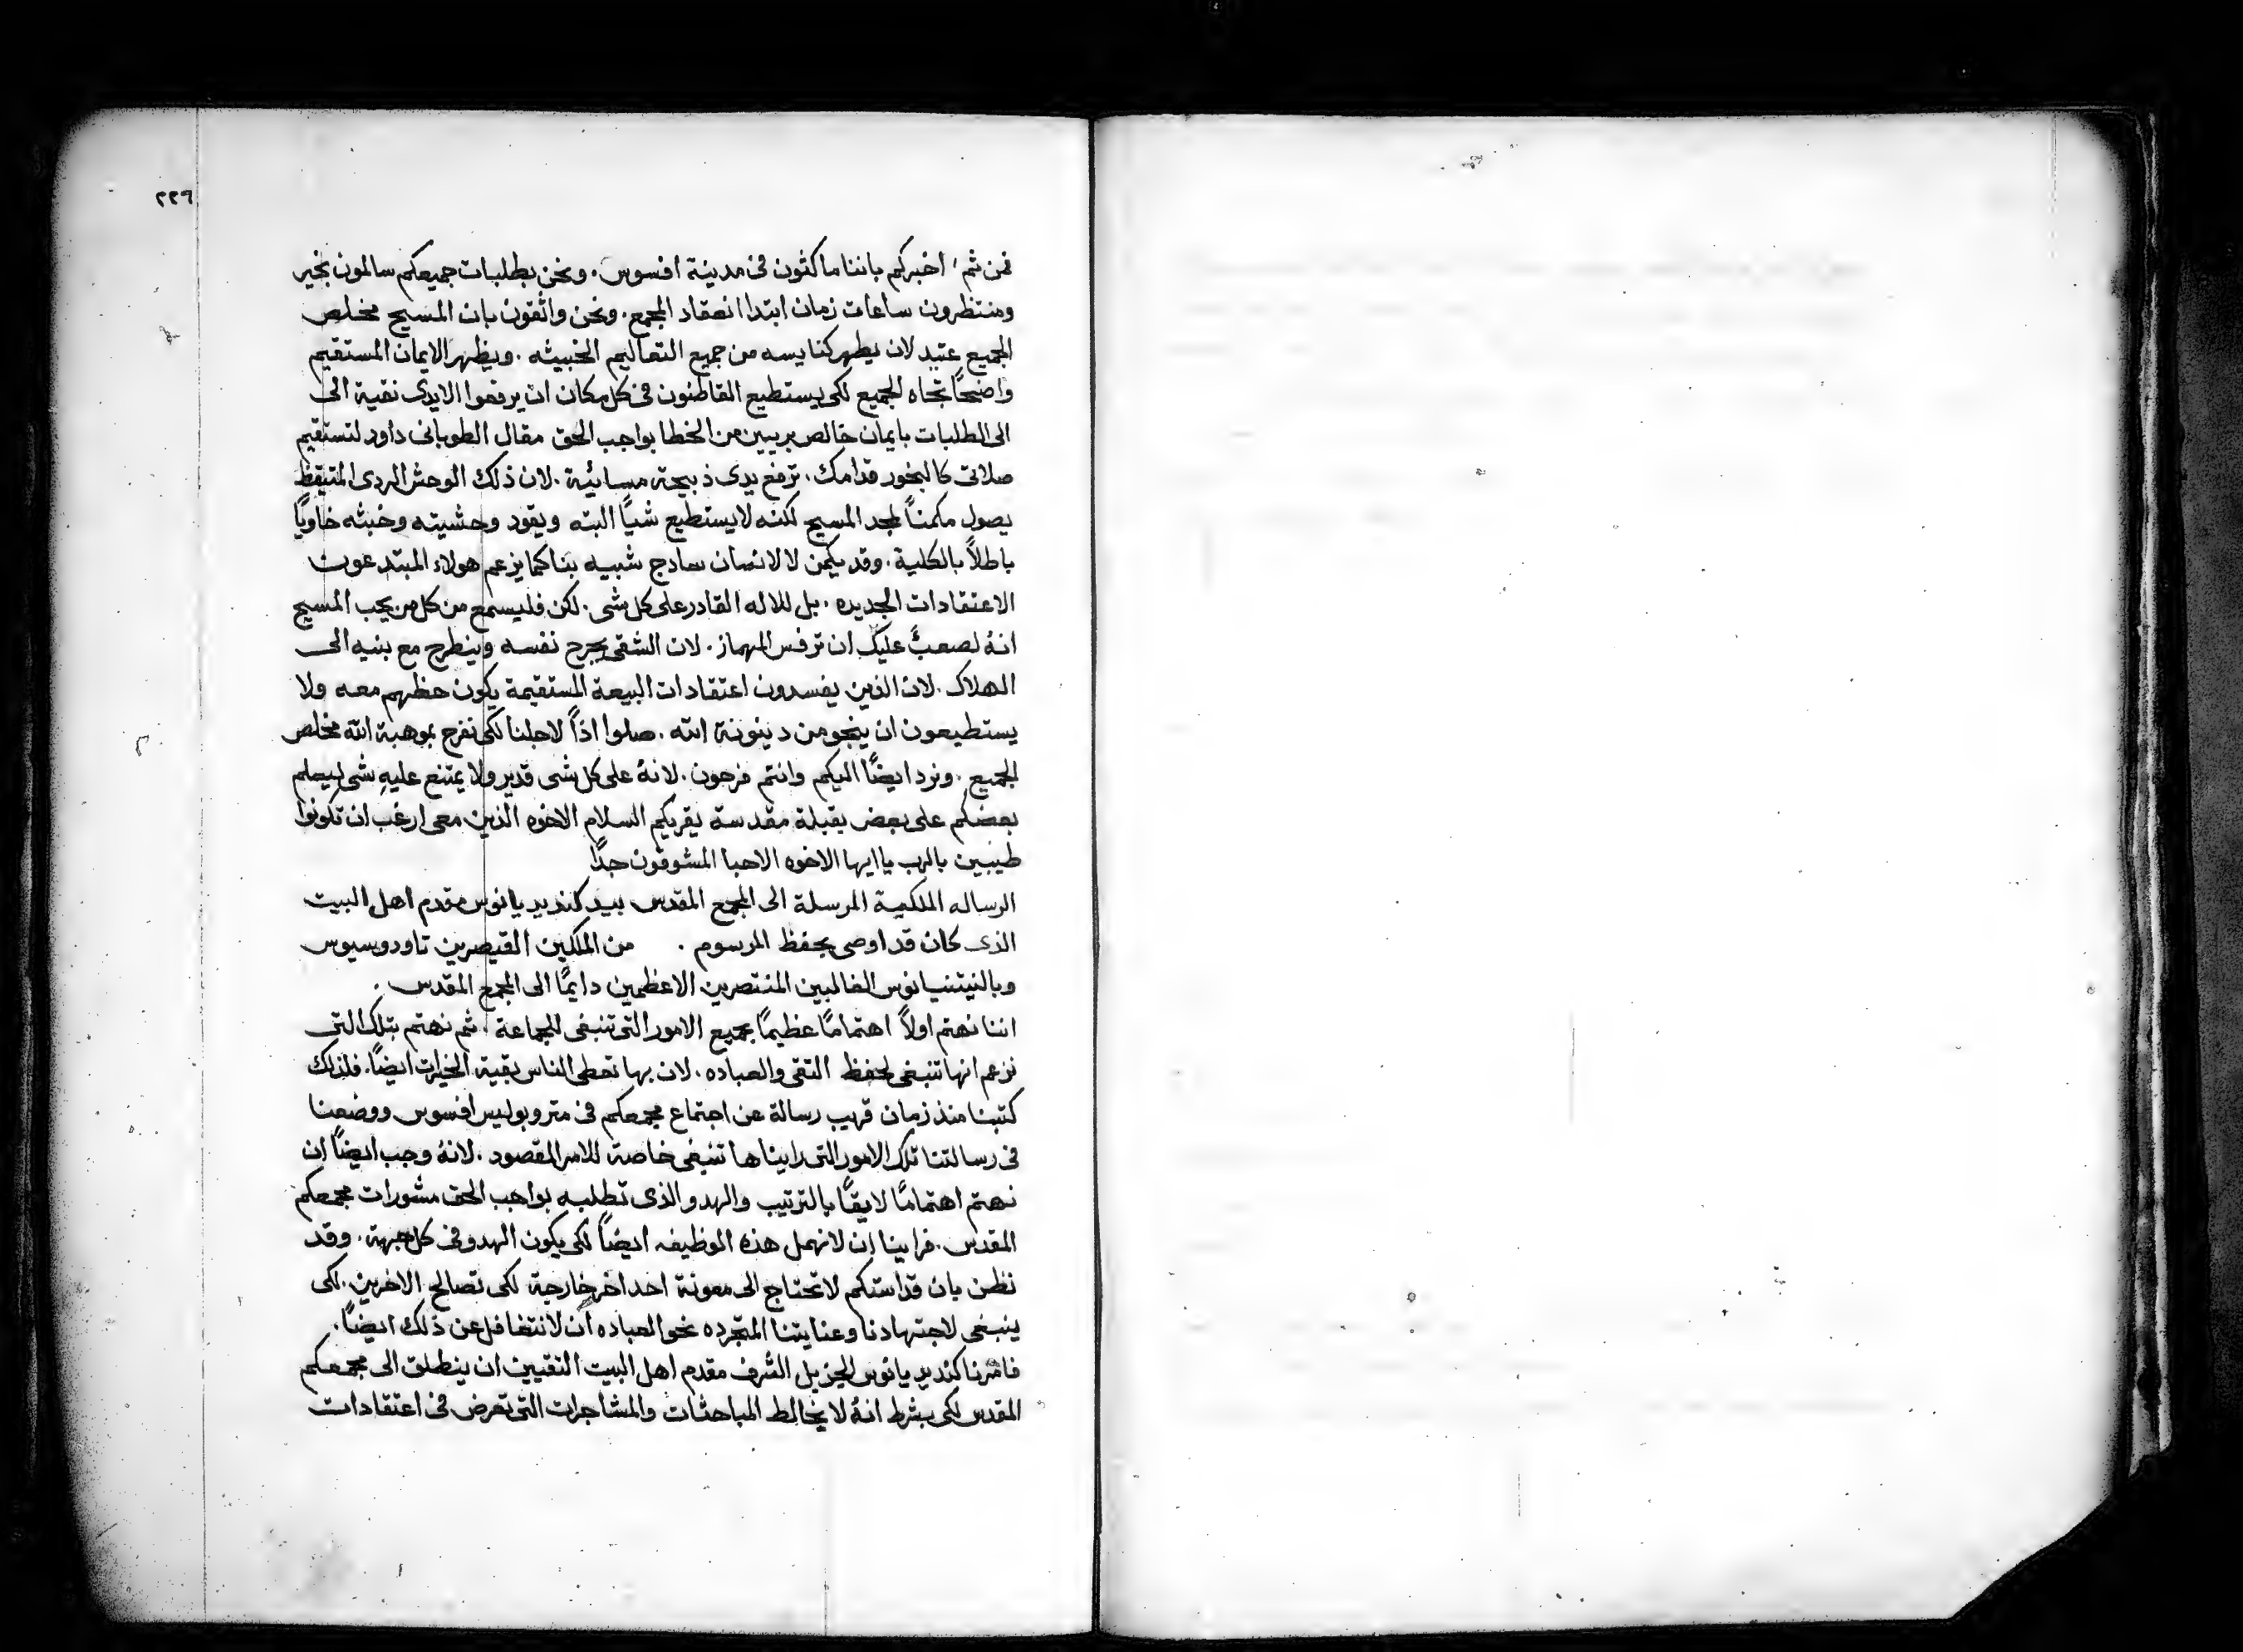 ٢٢٦
فمن ثم اخبركم باننا ماكثون فى مدينة افسوس. ونحن بطلبات جميعكم سالمون بخير
ومنتظرون ساعات زمان ابتدا انعقاد المجمع. ونحن واثقون بان المسيح مخلص
الجميع عتيد لان يطهر كنايسه من جميع التعاليم الخبيثه. ويظهر الايمان المستقيم
واضحًا تجاه الجميع لكى يستطيع القاطنون فى كل مكان ان يرفعوا الايدى نقية الى
الى الطلبات بايمان خالص بريين من الخطا بواجب الحق مقال الطوبانى داود لتستقيم
صلاتى كالبخور قدامك. ترفع يدى ذبيحة مسائية. لان ذلك الوحش الردى المتيقظ
يصول مكمنًا لمجد المسيح لكنه لا يستطيع شيًا البته ويقود وحشيته وخبثه خاويًا
باطلاً بالكلية. وقد يكمن لا لانسان سادج شبيه بنا كما يزعم هولاء المبتدعون
الاعتقادات الجديده. بل للاله القادر على كل شى. لكن فليسمع من كل من يحب المسيح
انهُ لصعبٌ عليك ان ترفس المهماز. لان الشقى يجرح نفسه وينطرح مع بنيه الى
الهلاك. لان الذين يفسدون اعتقادات البيعة المستقيمة يكون حظهم معه ولا
يستطيعون ان ينجو من دينونة الله. صلوا اذاً لاجلنا لكى نفرح بموهبة الله مخلص
الجميع. ونرد ايضًا اليكم وانتم فرحون. لانهُ على كل شى قدير ولا يمتنع عليهِ شى ليسلم
بعضكم على بعض بقبلة مقدسة يقريكم السلام الاخوه الذين معى ارغب ان تكونوا
طيبين بالرب يا ايها الاخوه الاحبا المشوقون جدًا
الرساله الملكية المرسلة الى المجمع المقدس بيد كنديديانوس مقدم اهل البيت
الذى كان قد اوصى بحفظ المرسوم. من الملكين القيصرين تاودوسيوس
وبالنيتنيانوس الغالبين المنتصرين الاعظمين دايمًا الى المجمع المقدس.
اننا نهتم اولاً اهتمامًا عظيمًا بجميع الامور التى تنبغى للجماعة. ثم نهتم بتلك التى
نزعم انها تنبغى لحفظ التقى والعباده. لان بها تعطى الناس بقية الخيرات ايضًا. فلذلك
كتبنا منذ زمان قريب رسالة عن اجتماع مجمعكم فى متروبوليس افسوس ووضعنا
فى رسالتنا تلك الامور التى رايناها تنبغى خاصة للامر المقصود. لانهُ وجب ايضًا ان
نهتم اهتمامًا لايقًا بالترتيب والهدو الذى تطلبه بواجب الحق مشورات مجمعكم
المقدس. فراينا ان لا نهمل هذه الوظيفه ايضاً لكى يكون الهدو فى كل جهة. وقد
نظن بان قداستكم لا تحتاج الى معونة احد اخر خارجة لكى تصالح الاخرين. لكى
ينبغى لاجتهادنا وعنايتنا المتجرده نحو العباده ان لا نتغافل عن ذلك ايضًا.
فامرنا كنديديانوس الجزيل الشرف مقدم اهل البيت التقيين ان ينطلق الى مجمعكم
المقدس لكى بشرط انهُ لا يخالط المباحثات والمشاجرات التى تعرض فى اعتقادات